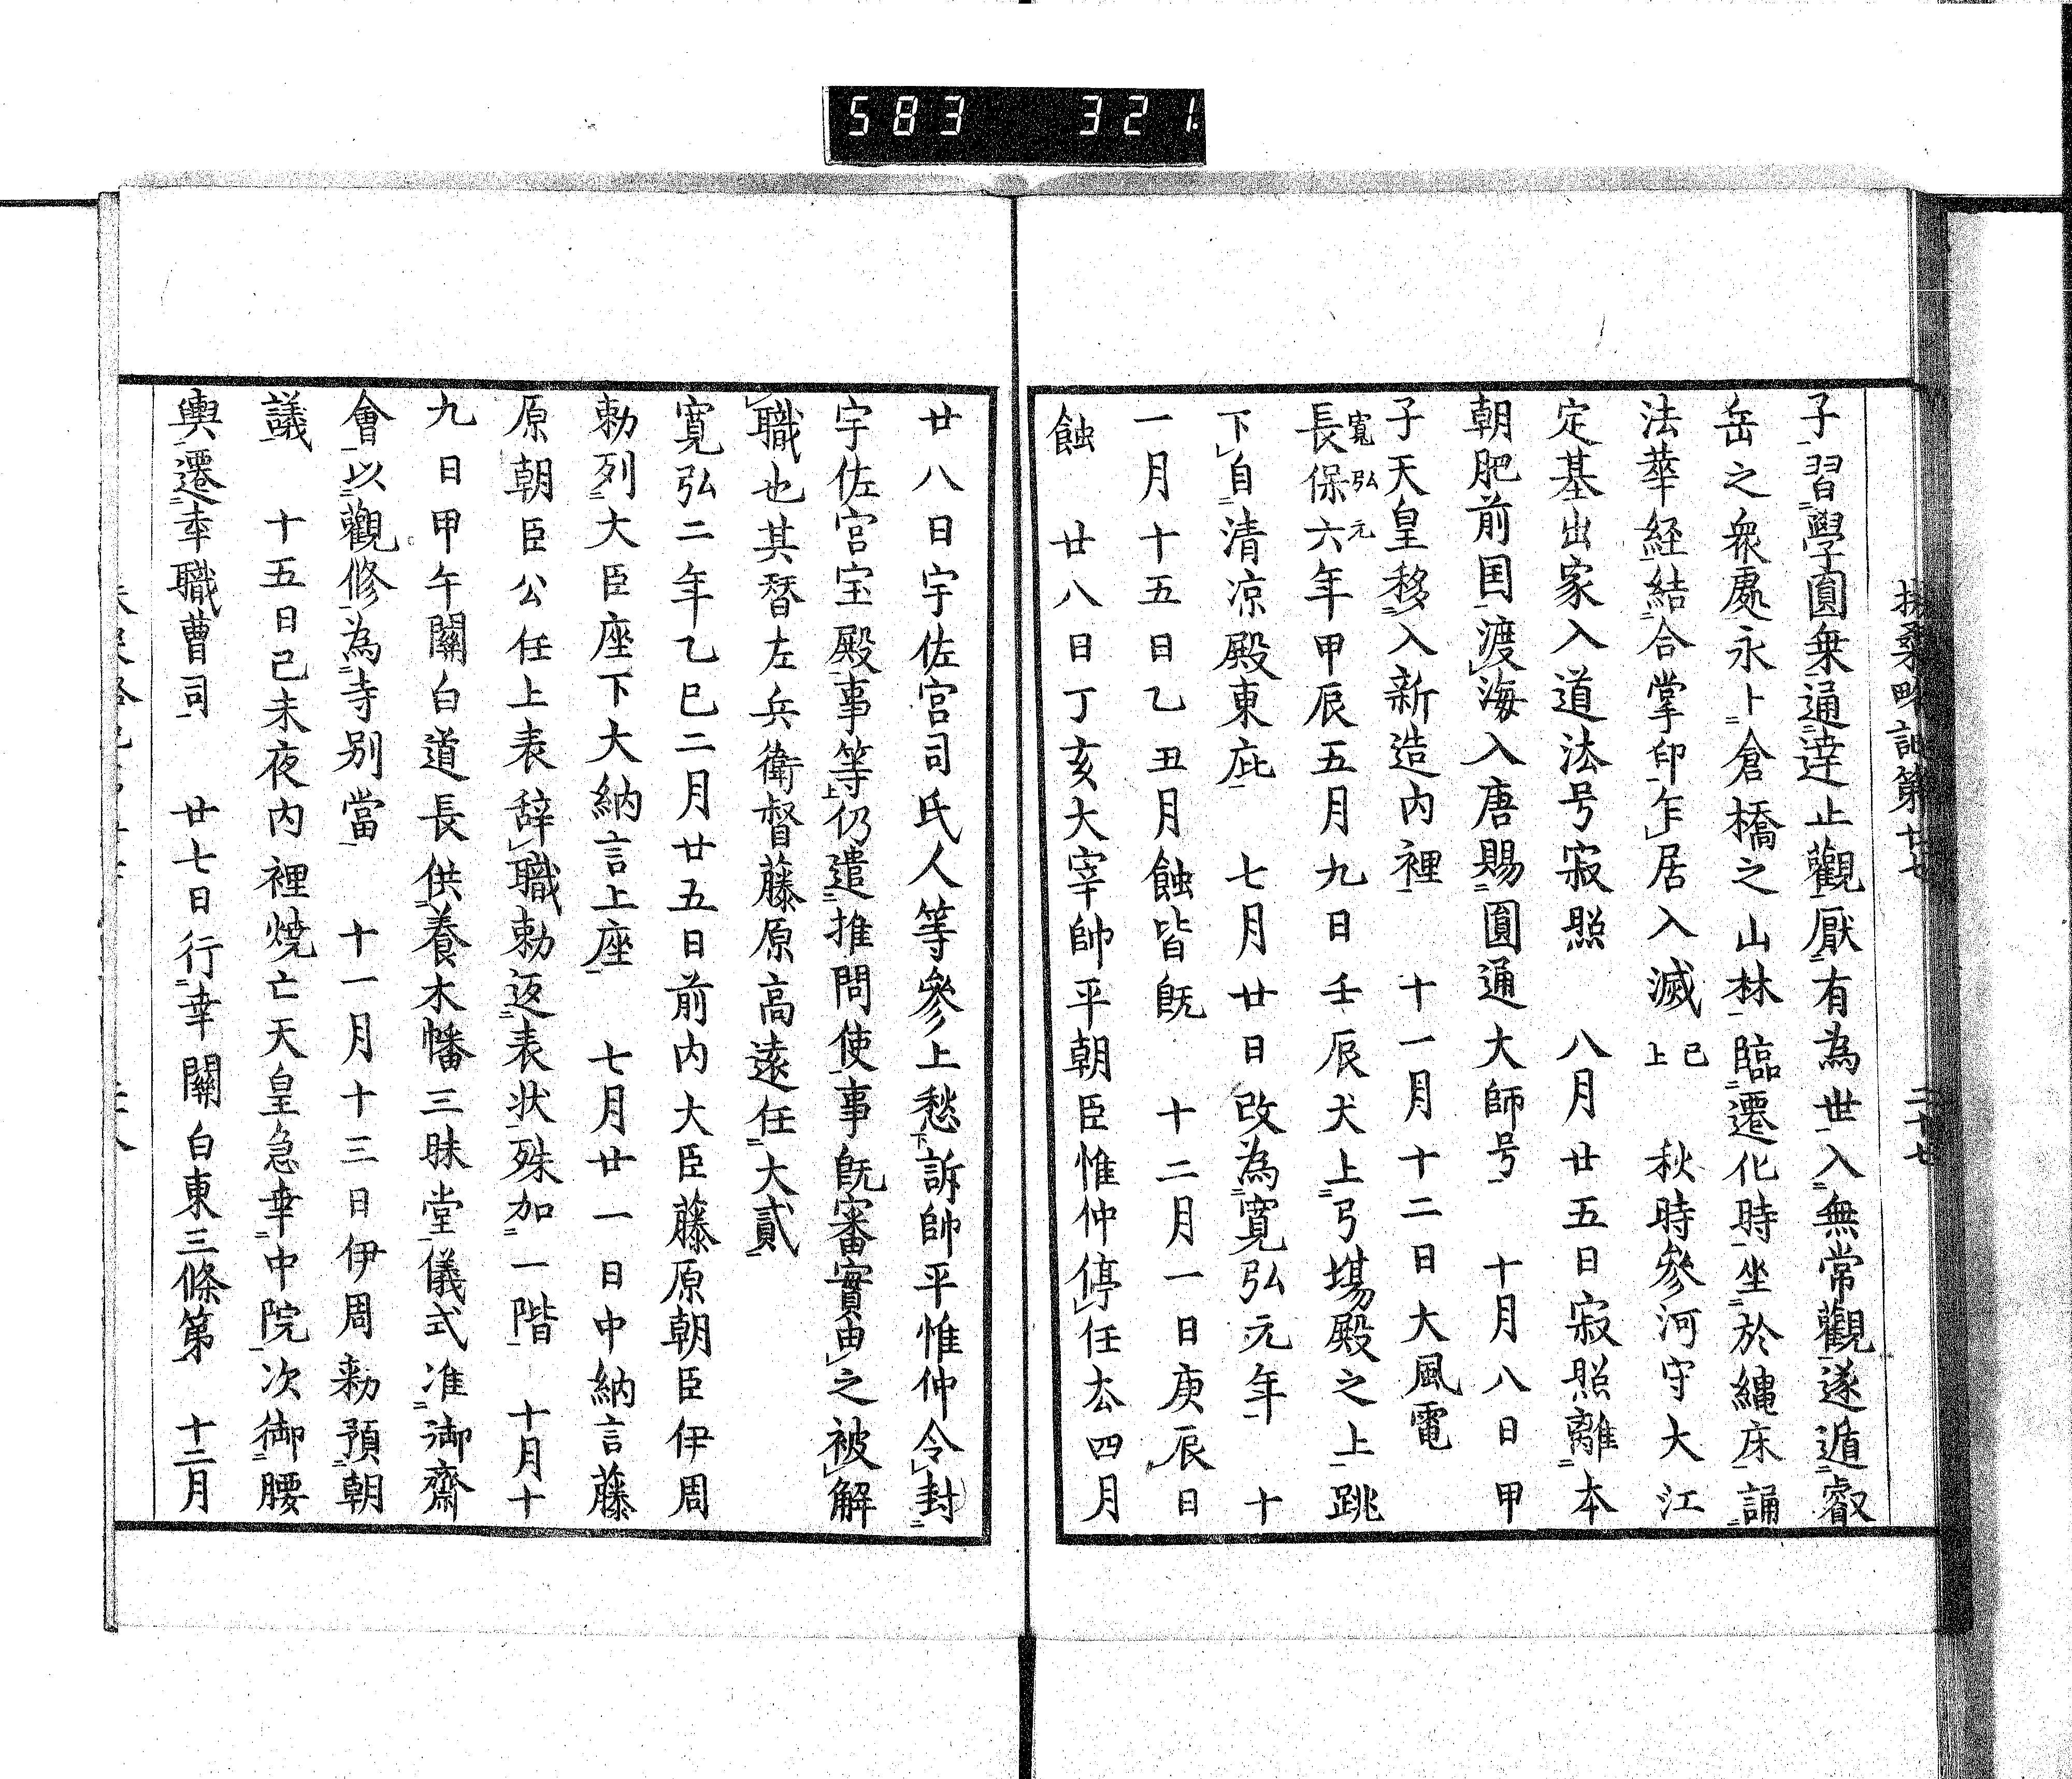 583 321.
扶桑略記第廿七 二十七
子習學圓乗通達止觀厭有為世入無常觀遂遁睿
岳之衆處永卜倉橋之山林臨遷化時坐於縄床誦
法華経結合掌印乍居入滅已上 秋時參河守大江
定基出家入道法号寂照 八月廿五日寂照離本
朝肥前国渡海入唐賜圓通大師号 十月八日甲
子天皇移入新造内裡 十一月十二日大風電
寛弘元
長保六年甲辰五月九日壬辰犬上弓場殿之上跳
下自清凉殿東庇 七月廿日改為寛弘元年 十
一月十五日乙丑月蝕皆既 十二月一日庚辰日
蝕 廿八日丁亥大宰帥平朝臣惟仲停任去四月
廿八日宇佐宮司氏人等參上愁訴帥平惟仲令封
宇佐宮宝殿事等仍遣推問使事既審實由之被解
職也其替左兵衛督藤原高遠任大貳
寛弘二年乙巳二月廿五日前内大臣藤原朝臣伊周
勅列大臣座下大納言上座 七月廿一日中納言藤
原朝臣公任上表辞職勅返表状殊加一階 十月十
九日甲午關白道長供養木幡三昧堂儀式准御齋
會以觀修為寺別當 十一月十三日伊周勅預朝
議 十五日己未夜内裡焼亡天皇急幸中院次御腰
輿遷幸職曹司 廿七日行幸關白東三條第 十二月